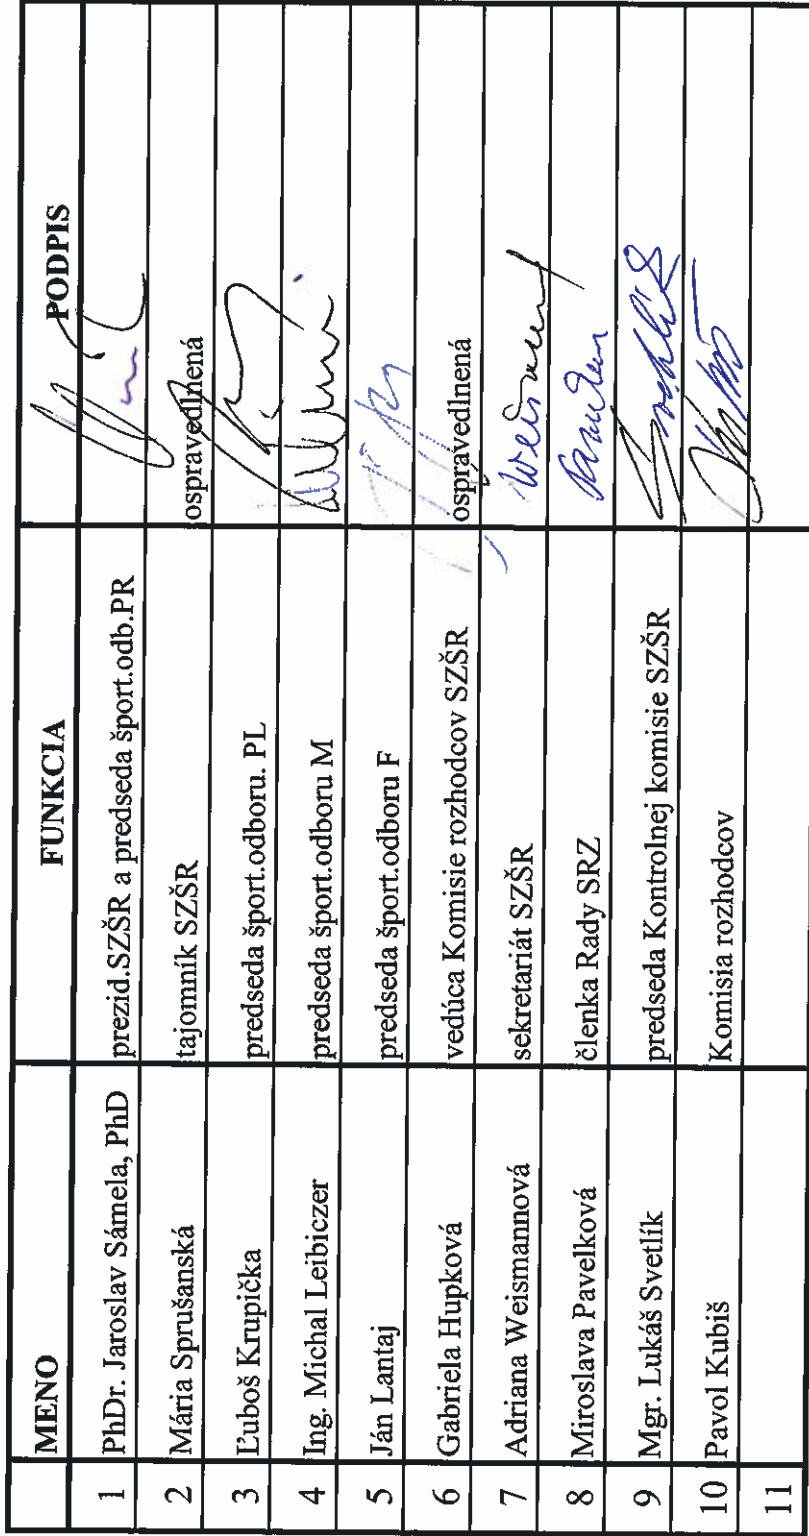 MENO FUNKCIA PODPIS
1 PhDr. Jaroslav Sámela, PhD prezid.SZŠR a predseda šport.odb.PR
2 Mária Sprušanská tajomník SZŠR ospravedlnená
3 Ľuboš Krupička predseda šport.odboru. PL
4 Ing. Michal Leibiczer predseda šport.odboru M
5 Ján Lantaj predseda šport.odboru F
6 Gabriela Hupková vedúca Komisie rozhodcov SZŠR ospravedlnená
7 Adriana Weismannová sekretariát SZŠR
8 Miroslava Pavelková členka Rady SRZ
9 Mgr. Lukáš Svetlík predseda Kontrolnej komisie SZŠR
10 Pavol Kubiš Komisia rozhodcov
11